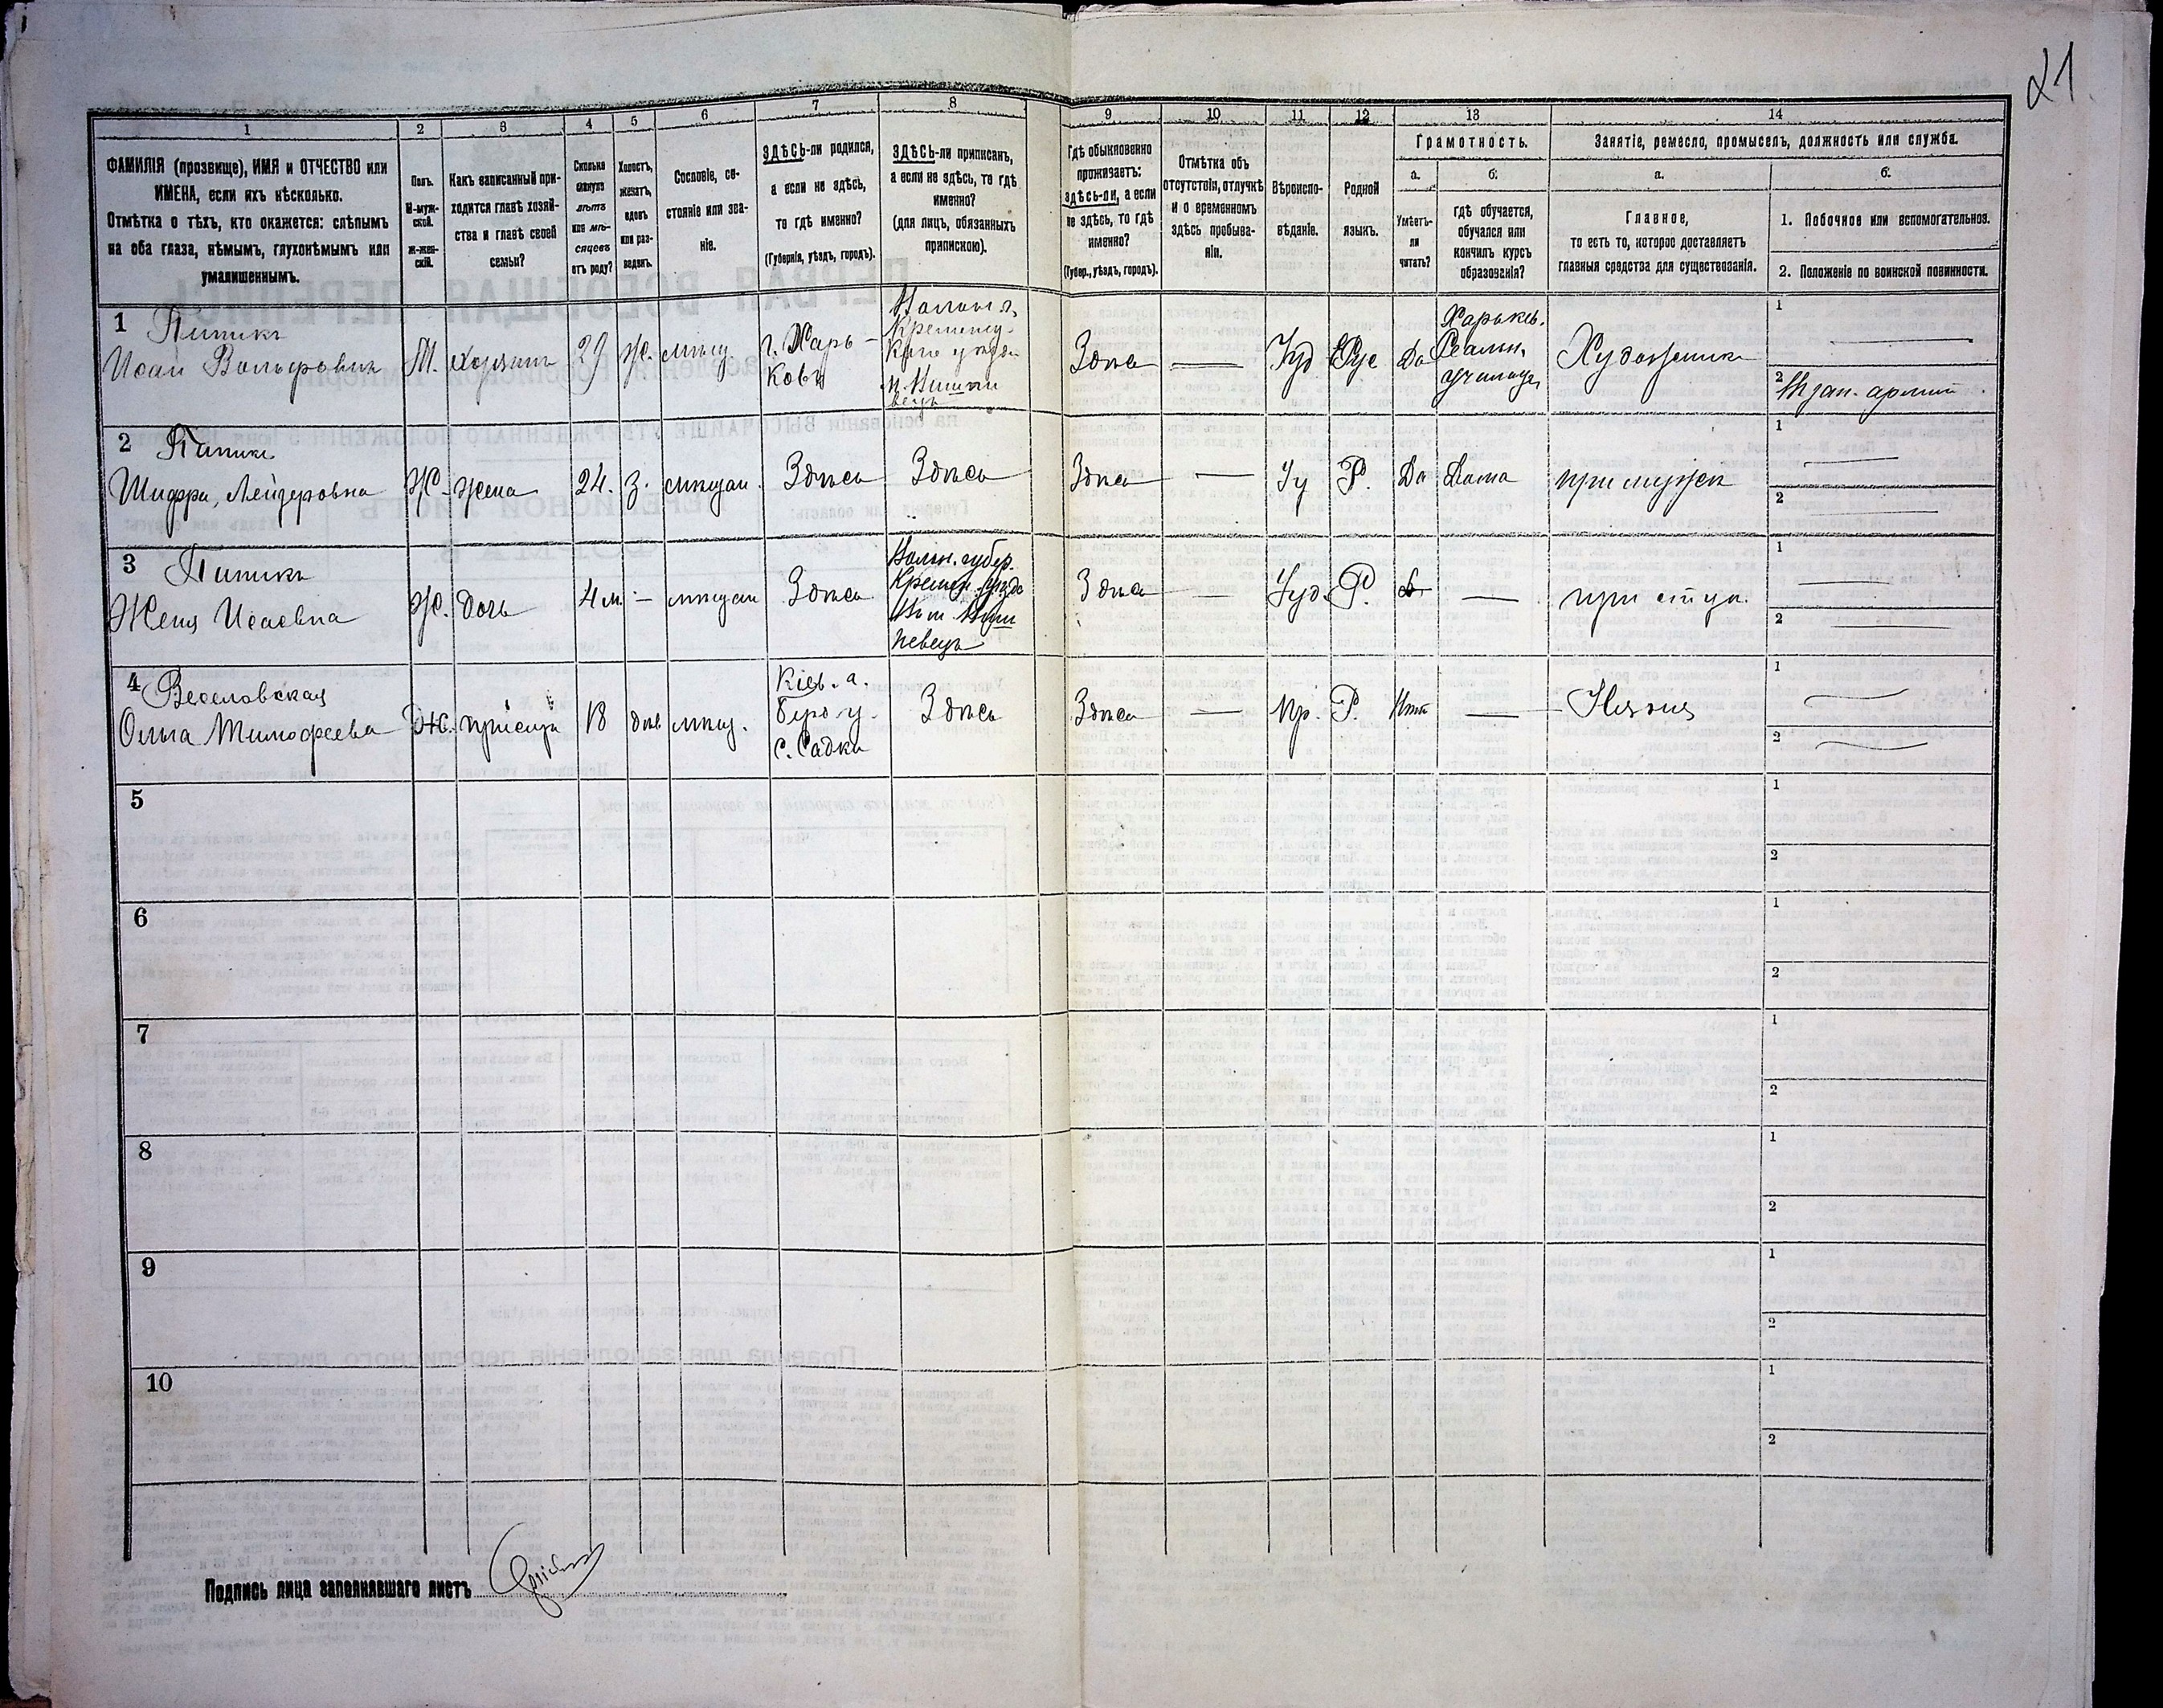 21
1 2 3 4 5 6 7 8 9 10 11 12 13 14
ФАМИЛІЯ (прозвище), ИМЯ и ОТЧЕСТВО или
ИМЕНА, если ихъ нѣсколько.
Отмѣтка о тѣхъ, кто окажется: слѣпымъ
на оба глаза, нѣмымъ, глухонѣмымъ или
умалишеннымъ.
Полъ.
М-муж-
ской.
Ж-жен-
скій.
Какъ записанный при-
ходится главѣ хозяй-
ства и главѣ своей
семьи?
Сколько
минуло
лѣтъ
или мѣ-
сяцевъ
отъ роду?
Холостъ,
женатъ,
вдовъ
или раз-
веденъ.
Сословіе, со-
стояніе или зва-
ніе.
ЗДѢСЬ-ли родился,
а если не здѣсь,
то гдѣ именно?
(Губернія, уѣздъ, городъ).
ЗДѢСЬ-ли приписанъ,
а если не здѣсь, то гдѣ
именно?
(для лицъ, обязанныхъ
припискою).
Гдѣ обыкновенно
проживаетъ:
здѣсь-ли, а если
не здѣсь, то гдѣ
именно?
(Губер., уѣздъ, городъ).
Отмѣтка объ
отсутствіи, отлучкѣ
и о временномъ
здѣсь пребыва-
ніи.
Вѣроиспо-
вѣданіе.
Родной
языкъ.
Грамотность.
а.
Умѣетъ-
ли
читать?
б.
гдѣ обучается,
обучался или
кончилъ курсъ
образованія?
Занятіе, ремесло, промыселъ, должность или служба.
а.
Главное,
то есть то, которое доставляетъ
главныя средства для существованія.
б.
1. Побочное или вспомогательное.
2. Положеніе по воинской повинности.
1 Пипикъ
Исай Вольфовичъ М. хозяинъ 29 Ж. мѣщ.
г. Харь-
ковъ
Кременц-
Здѣсь — Іуд Рус Да
Харьков.
Реальн.
училищ.
Художникъ
1
2
2 Пипикъ
Шифра Лейзеровна Ж. жена 24. З. мѣщан. Здѣсь Здѣсь Здѣсь — Іу Р. Да Дома при мужѣ
1
2
3 Пипикъ
Женя Исаевна Ж. дочь 4 м. — мѣщан Здѣсь
Волын. губер.
Кремен. уѣзда
Здѣсь — Іуд. Р. —
1
2
4 Веселовская
Ольга Тимофеева Ж. прислуга 18 дѣв мѣщ.
Кіев. г.
с. Садки
Здѣсь Здѣсь — Пр. Р. Нѣтъ — Няня
1
2
5
1
2
6
1
2
7
1
2
8
1
2
9
1
2
10
1
2
Подпись лица заполнявшаго листъ